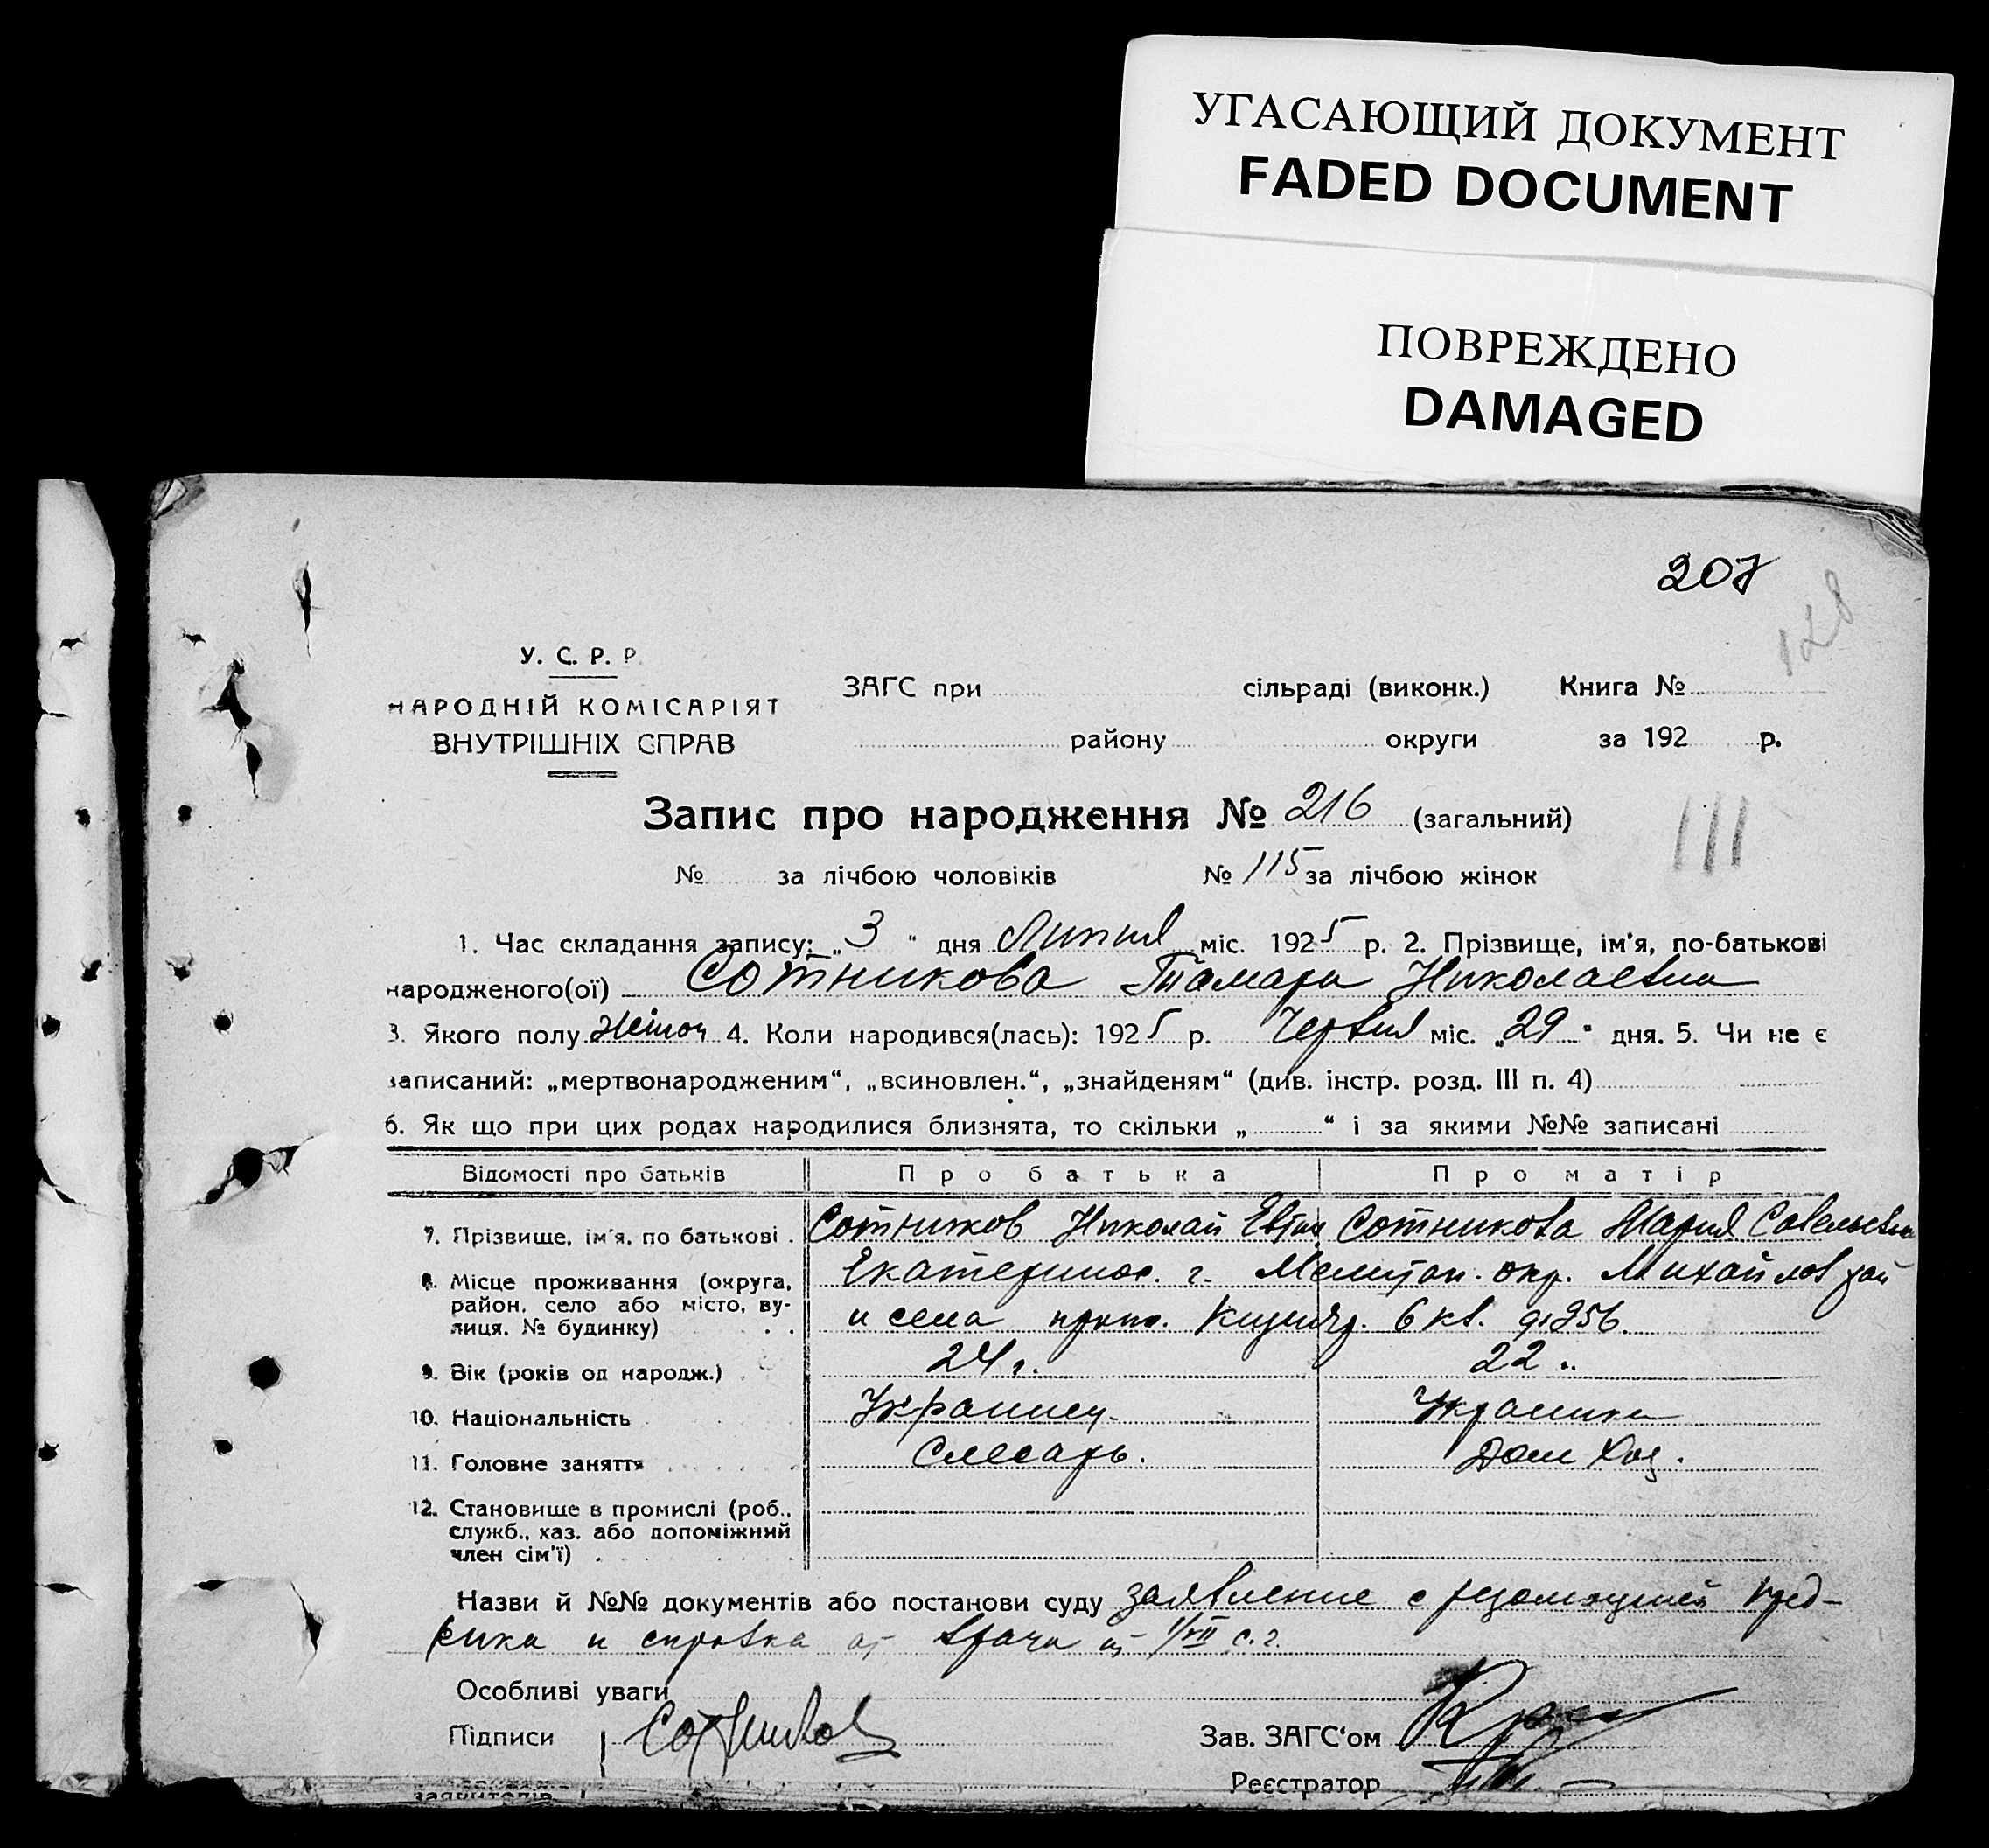 УГАСАЮЩИЙ ДОКУМЕНТ
FADED DOCUMENT
ПОВРЕЖДЕНО
DAMAGED
207
128
У. С. Р. Р.
НАРОДНІЙ КОМІСАРІЯТ
ВНУТРІШНІХ СПРАВ
ЗАГС при сільраді (виконк.) Книга №
району округи за 192 р.
Запис про народження № 216 (загальний)
III
№ за лічбою чоловіків № 115 за лічбою жінок
1. Час складання запису: „3“ дня Липня міс. 1925 р. 2. Прізвище, ім'я, по-батькові
народженого(ої) Сотникова Тамара Николаевна
3. Якого полу жіноч 4. Коли народився(лась): 1925 р. Червня міс. „29“ дня. 5. Чи не є
записаний: „мертвонародженим“, „всиновлен.“, „знайденям“ (див. інстр. розд. III п. 4)
6. Як що при цих родах народилися близнята, то скільки „ “ і за якими №№ записані
Відомості про батьків Про батька Про матір
7. Прізвище, ім'я, по батькові . Сотников Николай Сотникова Мария Савельевна
8. Місце проживання (округа, Екатеринос. г. Мелитоп. окр.
район, село або місто, ву-
лиця, № будинку) . . и села 6 кв. д. 256.
9. Вік (років од народж.) . 24 г. 22 „
10. Національність Украинец. Украинка
11. Головне заняття Слесарь. Дом Хоз.
12. Становище в промислі (роб.,
служб., хаз. або допоміжний
член сім'ї) .
Назви й №№ документів або постанови суду заявление с резолюцией пред-
рика и справка от врача от 1/VII с.г.
Особливі уваги
Підписи Сотников Зав. ЗАГС'ом
Реєстратор
заявителів